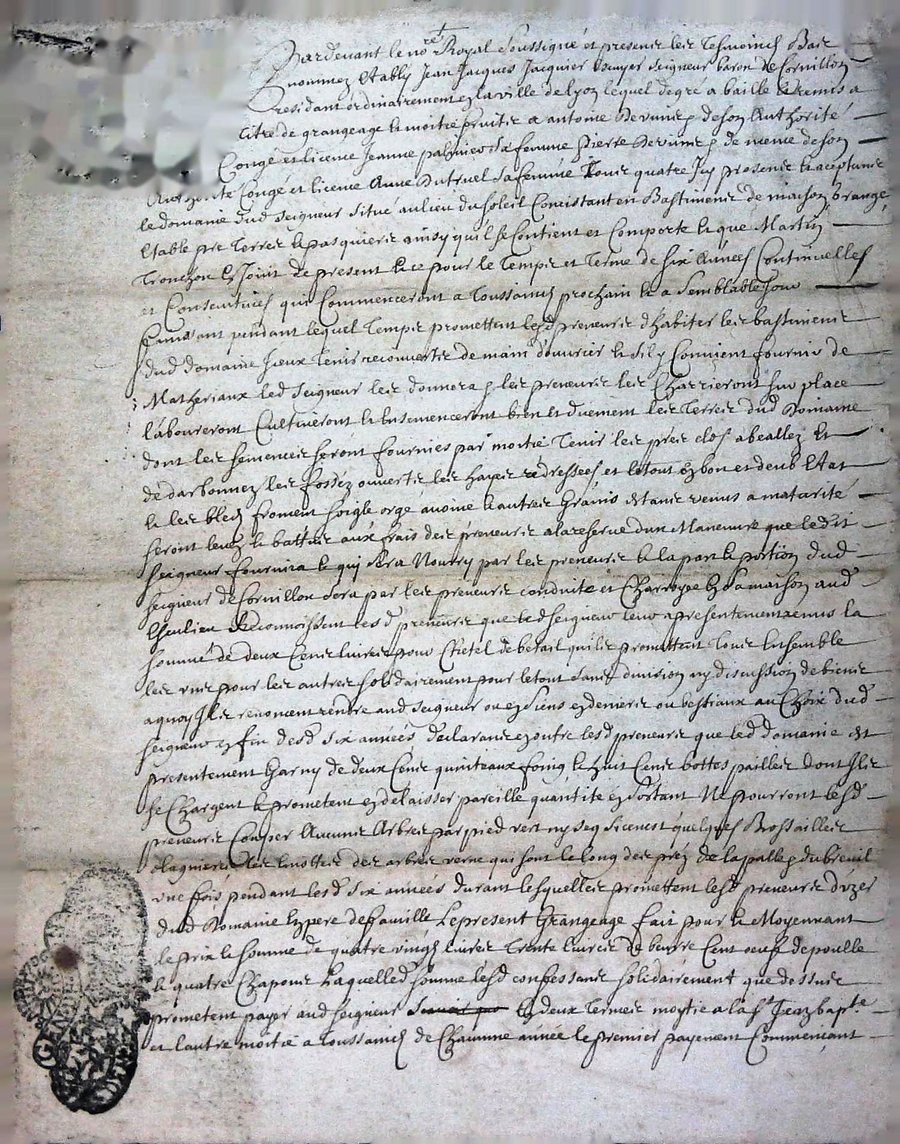 Pardevant le no.re Royal soussigné et presentz les tesmoins bas
nommez estably Jean Jacques Jacquier escuyer seigneur baron de Cornillon
residant ordinairement en la ville de lyon lequel degre a baille et remis a
titre de grangeage et moitie fruitz a antoine de son authorité
Congé et licence Jeanne sa femme Pierre de meme de son
Congé et licence Anne sa femme tous quatre icy presentz et aceptantz
le domaine dud seigneur situé au lieu du soleil Concistant en Bastimentz de maison grange
estable prez Terres et pasquiers ainsy quil se Contient et Comporte et que Martin
Tronchon en Jouit de present et ce pour le Temps et terme de six Années Continuelles
et Consecutives qui Commenceront a Toussainctz prochain et a semblable Jour
finissant pendant lequel Temps promettent lesd preneurs dhabiter les bastimentz
dud domaine Jceux tenir recouvertz de main douvrier et sil y Convient fournir de
Matheriaux led seigneur les donnera les preneurs les Charrieront sur place
laboureront Cultiveront et ensemenceront bien et duement les Terres dud Domaine
dont les semences seront fournies par moitié Tenir les prez clos abeallez et
dedarbonnez les fossez ouvertz les hayes redressees et le tout en bon et deub estat
et les bledz froment seigle orge avoine et autres Grains estant venus a maturité
seront levez et battus aux frais des preneurs a la reserve dun Maneuvre que ledit
seigneur fournira et qui sera Nourry par les preneurs et la part et portion dud
seigneur de Cornillon sera par les preneurs conduite et Charroyee en sa maison aud
lieu Reconnoissent lesd preneurs que led seigneur leur a presentement remis la
somme de deux Centz livres pour Chetel de betail quils promettent Tous Ensemble
les uns pour les autres solidairement pour le tout sans division ny discussion de biens
a quoy Jls renoncent rendre aud seigneur ou es siens en deniers ou bestiaux au Choix dud
seigneur en fin desd six années declarants en outre lesd preneurs que led domaine est
presentement Garny de deux Centz quinteaux foing et huit Centz bottes pailles dont Jls
se Chargent et prometent en delaisser pareille quantité en sortant Ne pourront lesd
preneurs Couper Aucuns Arbres par pied vert ny sec si ce nest quelques Brossailles
et les des arbres verne qui sont le long des prez de la palle et du breuil
une fois pendant lesd six années durant lesquelles promettent lesd preneurs duzer
dud Domaine en pere de famille Le present Grangeage fait pour et Moyennant
le prix et somme de quatre vingtz livres Trente livres de beurre Cent oeufz de poulle
et quatre Chapons Laquelle somme lesd confessants solidairement que dessus
prometent payer aud seigneur en deux Termes moytie a la st Jean bap.te
et lautre moitie a toussainctz de Chacunne année le premier payement Commencant